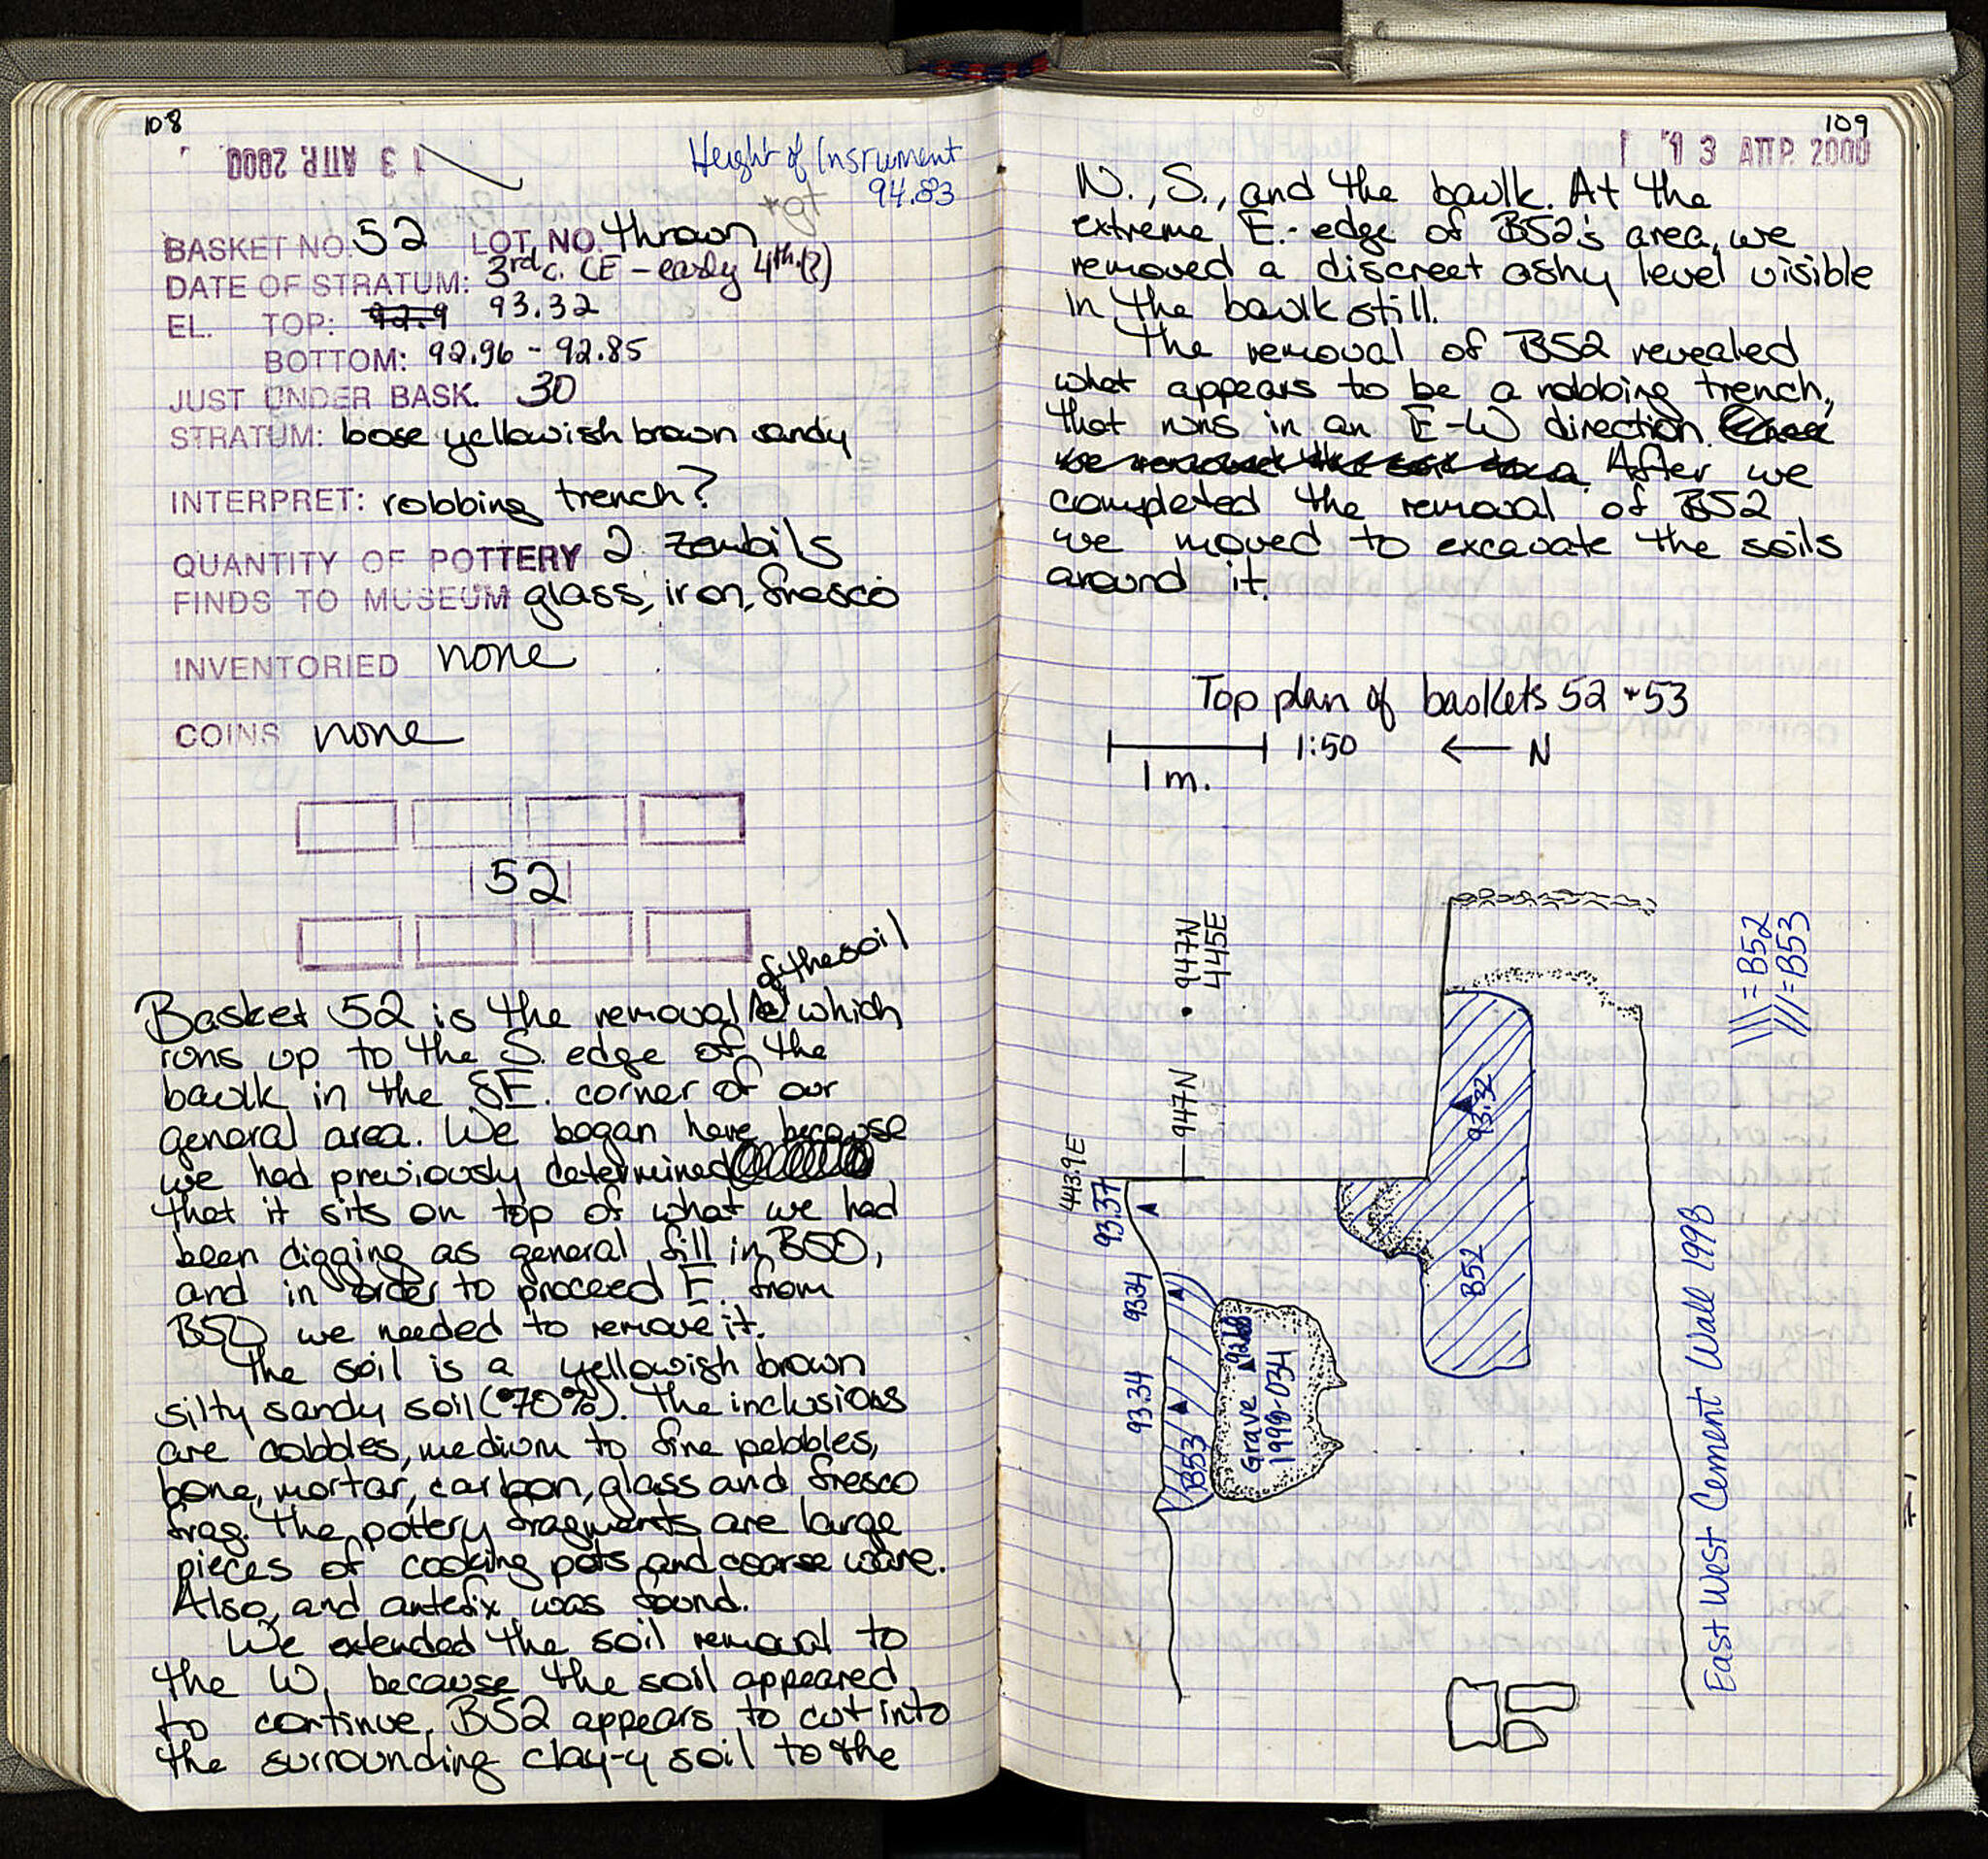 108
13 ΑΠΡ. 2000
Height of Insrument
94.83
tgt
BASKET NO. 52 LOT NO. thrown
DATE OF STRATUM: 3rd c. CE – early 4th.(?)
EL. TOP: 92.9 93.32
BOTTOM: 92.96 - 92.85
JUST UNDER BASK. 30
STRATUM: loose yellowish brown sandy
INTERPRET: robbing trench?
QUANTITY OF POTTERY 2 zembils
FINDS TO MUSEUM glass, iron, fresco
INVENTORIED none
COINS none
52
of the soil
Basket 52 is the removal which
runs up to the S. edge of the
baulk in the SE. corner of our
general area. We began here because
we had previously determined
that it sits on top of what we had
been digging as general fill in B50,
and in order to proceed E. from
B50 we needed to remove it.
The soil is a yellowish brown
silty sandy soil (°70%). The inclusions
are cobbles, medium to fine pebbles,
bone, mortar, carbon, glass and fresco
frag. The pottery fragments are large
pieces of cooking pots and coarse ware.
Also, and antefix was found.
We extended the soil removal to
the W. because the soil appeared
to continue. B52 appears to cut into
the surrounding clay-y soil to the
109
13 ΑΠΡ. 2000
N., S., and the baulk. At the
extreme E. edge of B52's area, we
removed a discreet ashy level visible
in the baulk still.
The removal of B52 revealed
what appears to be a robbing trench,
that runs in an E-W direction. Once
we removed the soil After we
completed the removal of B52
we moved to excavate the soils
around it.
Top plan of baskets 52 + 53
1:50 ← N
1 m.
947N
445E
= B52
= B53
93.32
947N
443.9E
93.37
B52
93.34
93.34
B53
Grave 92.68
1999-034
East West Cement Wall 1998